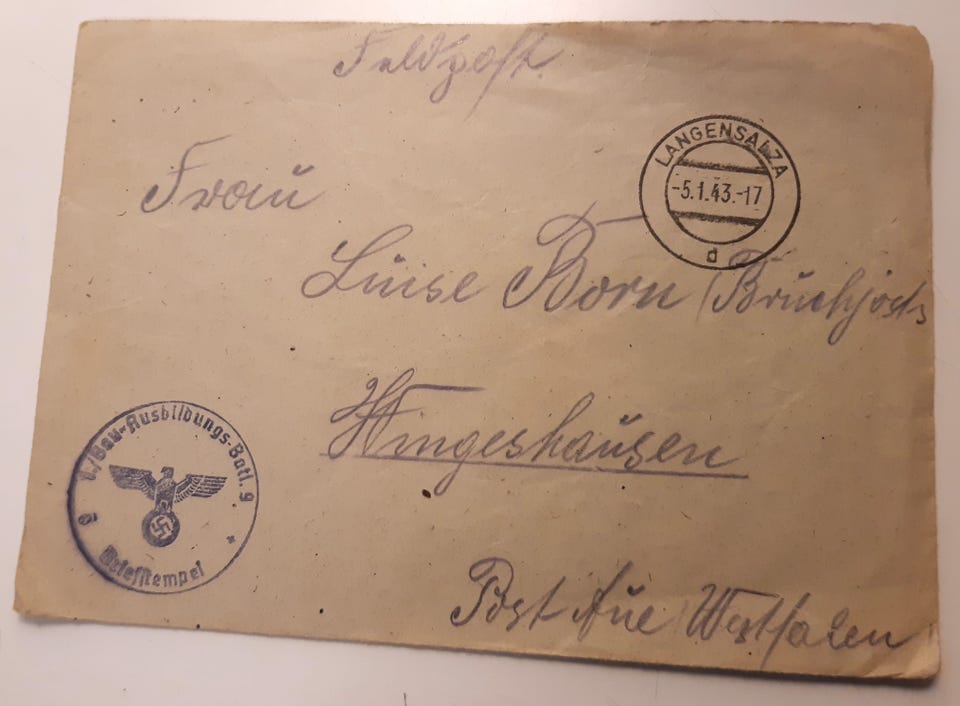 Feldpost
LANGENSALZA
-5.1.43.-17
d
Frau
Luise Born (Bruchjosts
Wingeshausen
Bau-Ausbildungs-Batl. 9
Briefstempel
Post Aue Westfalen